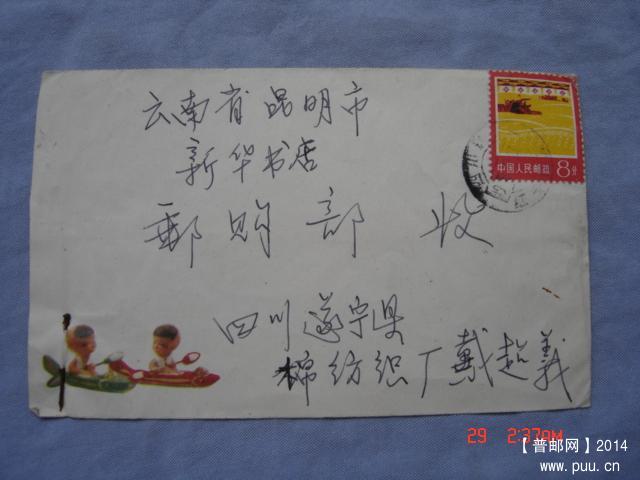 云南省昆明市
新华书店
邮购部 收
中国人民邮政 8分
四川遂宁县
棉纺织厂戴超義
29 2:37AM
【普邮网】2014
www.puu.cn